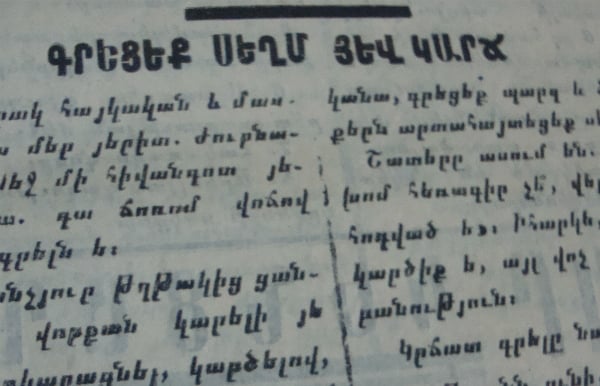 ԳՐԵՑԵՔ ՍԵՂՄ ՅԵՎ ԿԱՐՃ
հայկական և մաս-
մեր յերիտ. ժուրնա-
մի հիվանդոտ յե-
դա ճոռոմ վոճով
գրելն ե։
թղթակից ցան-
վորքան կարելի յե
կարծելով,
կանա, գրեցեք պարզ և
քերն արտահայտեցեք
Շատերը ասում են.
խոմ հեռագիր չե՛,
հոդված ե»։ Իհարկե,
կարծիք ե, այլ վոչ
բանություն։
կրճատ գրելը